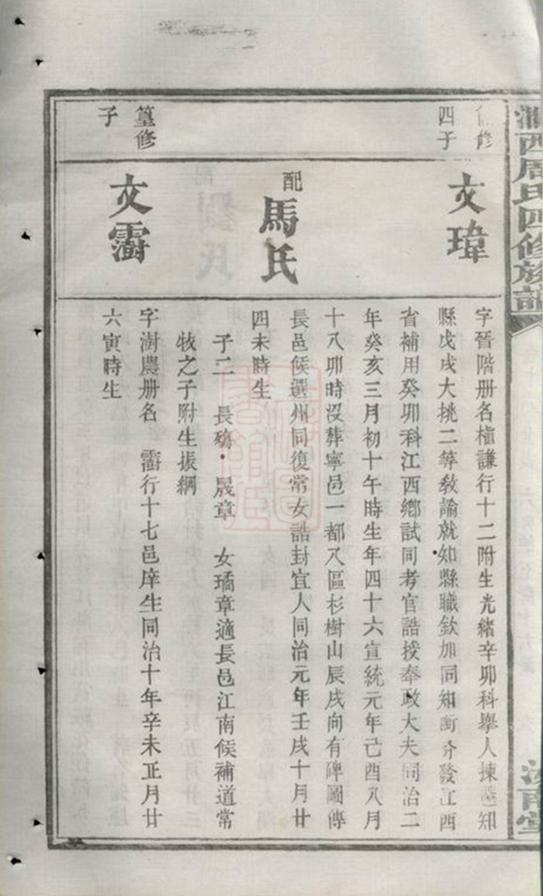 西周氏四修族譜
汝南堂
修
四子
文瑋
字晉階册名權謙行十二附生光緒辛卯科舉人揀選知
縣戊戌大挑二等敎諭就知縣職欽加同知銜分發江西
省補用癸卯科江西鄉試同考官誥授奉政大夫同治二
年癸亥三月初十午時生年四十六宣統元年己酉八月
十八卯時沒葬寧邑一都八區杉樹山辰戌向有碑圖傳
配
馬氏
長邑候選州同復常女誥封宜人同治元年壬戌十月廿
四未時生
子二 長殤 晟章 女璚章適長邑江南候補道常
牧之子附生振綱
篁修
子
文霌
字澍農册名 霌行十七邑庠生同治十年辛未正月廿
六寅時生